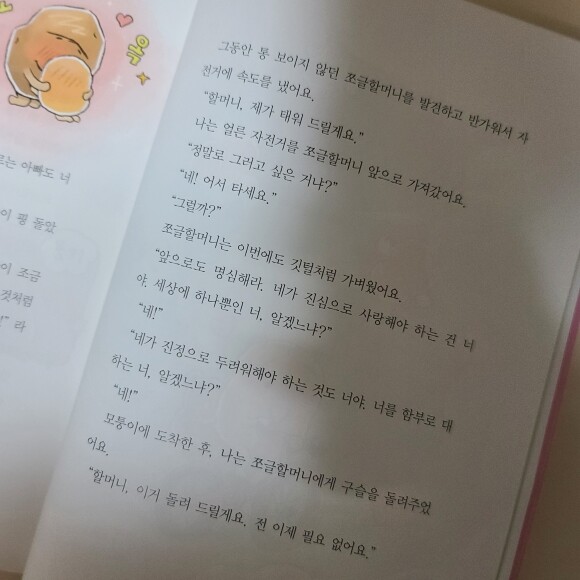 욱
르는 아빠도 너
이 평 돌았
이 조금
것처럼
" 라
그동안 통 보이지 않던 쪼글할머니를 발견하고 반가워서 자
전거에 속도를 냈어요.
"할머니, 제가 태워 드릴게요."
나는 얼른 자전거를 쪼글할머니 앞으로 가져갔어요.
"정말로 그러고 싶은 거냐?"
"네! 어서 타세요."
"그럴까?"
쪼글할머니는 이번에도 깃털처럼 가벼웠어요.
"앞으로도 명심해라. 네가 진심으로 사랑해야 하는 건 너
야. 세상에 하나뿐인 너. 알겠느냐?"
"네!"
"네가 진정으로 두려워해야 하는 것도 너야. 너를 함부로 대
하는 너. 알겠느냐?"
"네!"
모퉁이에 도착한 후, 나는 쪼글할머니에게 구슬을 돌려주었
어요.
"할머니, 이거 돌려 드릴게요. 전 이제 필요 없어요."